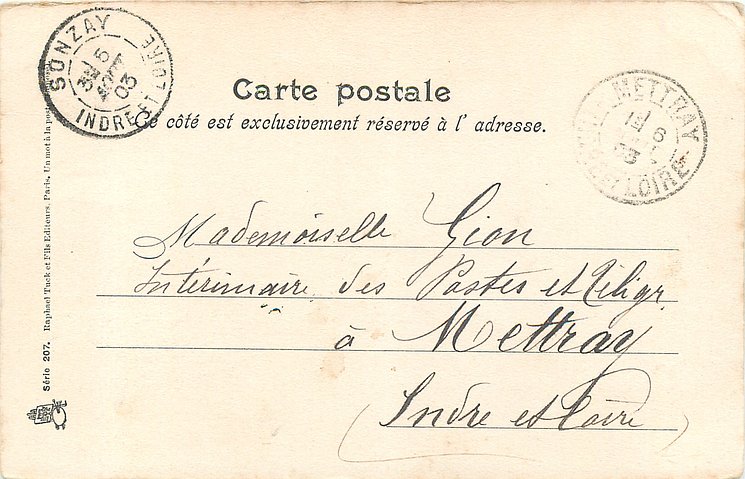 SONZAY
3E
5
03
INDRE-ET-LOIRE
Carte postale
Ce côté est exclusivement réservé à l' adresse.
METTRAY
1E
6
LOIRE
Mademoiselle Gion
Intérimaire des Postes et Télégr
à Mettray
Indre et Loire
Série 207. Raphael Tuck et Fils Editeurs, Paris. Un mot à la poste